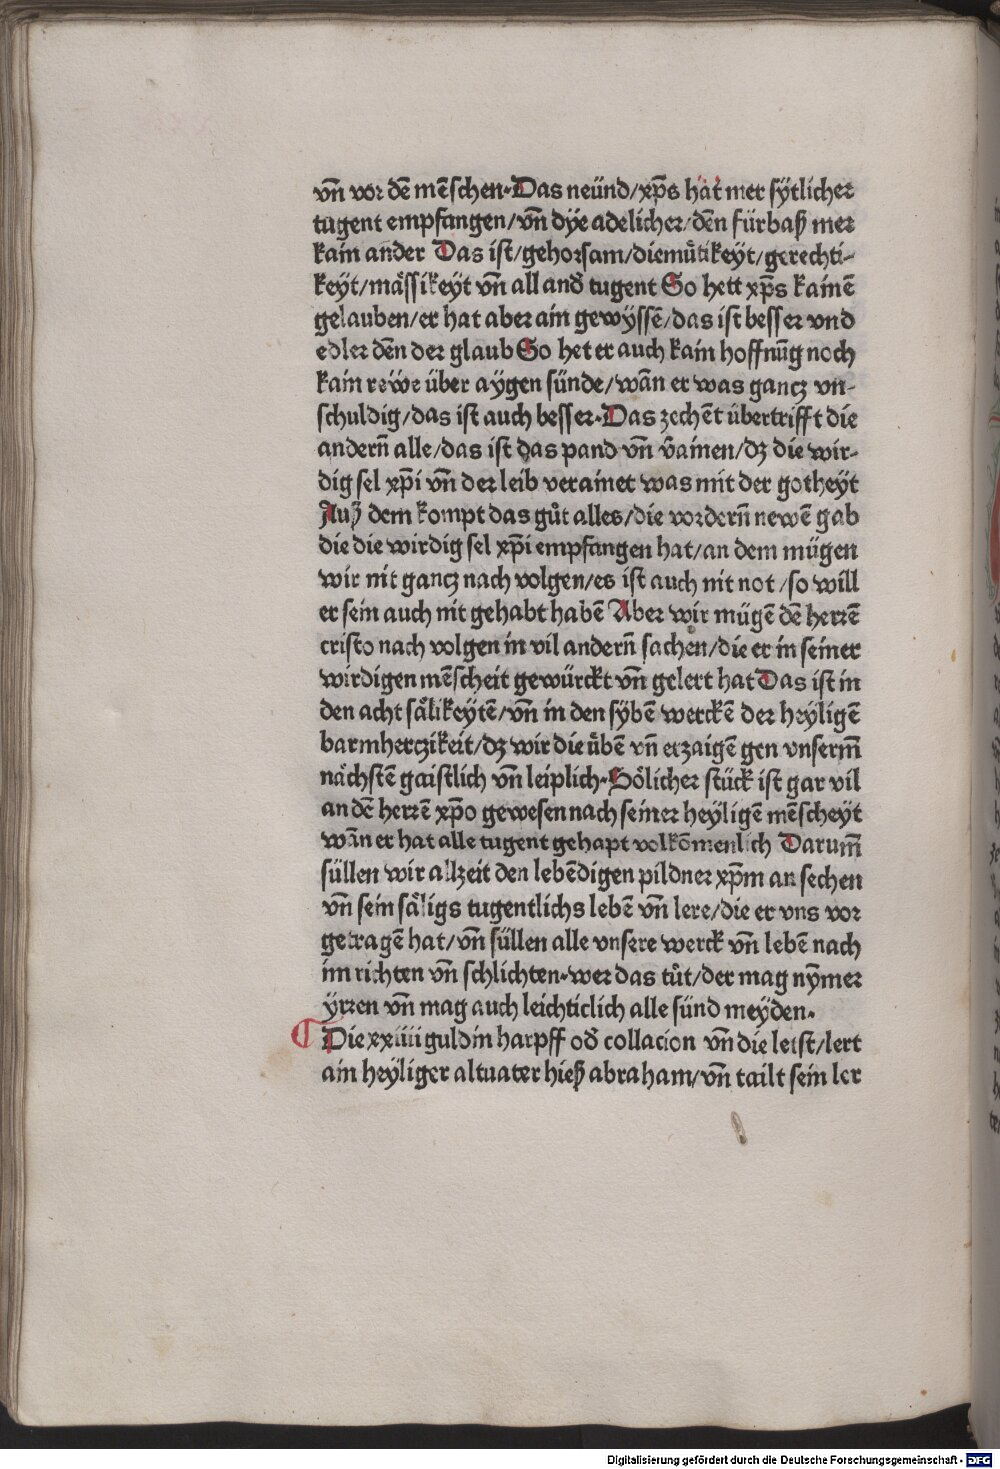 vn̄ vor dē mēschen·Das neünd/xp̄s hat mer sytlicher
tugent empfangen/vn̄ dÿe adelicher/dēn fürbaß mer
kain ander Das ist/gehorsam/diemuͤtikeyt/gerechti-
keyt/maͤssikeyt vn̄ all and̓ tugent So hett xp̄s kainē
gelauben/er hat aber ain gewÿssē/das ist besser vnd
edler dēn der glaub So het er auch kain hoffnūg noch
kain rewe über aÿgen sünde/wān er was gancz vn-
schuldig/das ist auch besser·Das zechēt übertrifft die
andern̄ alle/das ist das pand vn̄ v̄ainen/dz die wir-
dig sel xp̄i vn̄ der leib verainet was mit der gotheyt
Auß dem kompt das guͦt alles/die vordern̄ newē gab
die die wirdig sel xp̄i empfangen hat/an dem mügen
wir nit gancz nach volgen/es ist auch nit not/so will
er sein auch nit gehabt habē Aber wir mügē dē herrē
cristo nach volgen in vil andern̄ sachen/die er in seiner
wirdigen mēscheit gewürckt vn̄ gelert hat Das ist in
den acht saͤlikeytē/vn̄ in den sÿbē werckē der heyligē
barmherczikeit/dz wir die uͤbē vn̄ erzaigē gen vnserm̄
naͤchstē gaistlich vn̄ leiplich·Soͤlicher stück ist gar vil
an dē herrē xp̄o gewesen nach seiner heyligē mēscheyt
wān er hat alle tugent gehapt volkōmenlich Darum̄
süllen wir allzeit den lebēdigen pildner xp̄m an sechen
vn̄ sein saͤligs tugentlichs lebē vn̄ lere/die er vns vor
getragē hat/vn̄ süllen alle vnsere werck vn̄ lebē nach
im richten vn̄ schlichten·wer das tuͦt/der mag nȳmer
ÿrren vn̄ mag auch leichticlich alle sünd meyden·
Die xxiiii guldin harpff od̓ collacion vn̄ die letst/lert
ain heyliger altuater hieß abraham/vn̄ tailt sein ler
Digitalisierung gefördert durch die Deutsche Forschungsgemeinschaft - DFG